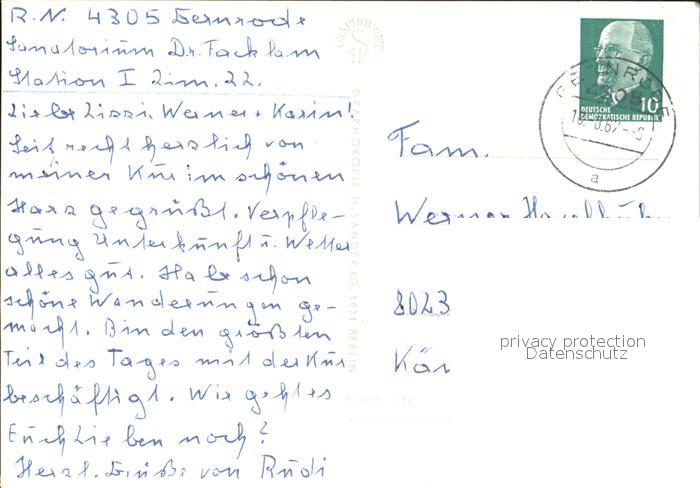 R.N. 4305 Gernrode
Sanatorium Dr. Facklam
Station I Zim. 22.
Liebe Lissi, Werner + Karin!
Seit recht herzlich von
meiner Kur im schönen
Harz gegrüßt. Verpfle-
gung Unterkunft u. Wetter
alles gut. Habe schon
schöne Wanderungen ge-
macht. Bin den größten
Teil des Tages mit der Kur
beschäftigt. Wie geht es
Euch Lieben noch?
Herzl. Grüße von Rudi
GRAPHOKOPIE H. SANDER KG, 1071 BERLIN
GRAPHOKOPIE
DEUTSCHE
DEMOKRATISCHE REPUBLIK
10
GERNRODE
a
Fam.
Werner
8023
privacy protection
Datenschutz